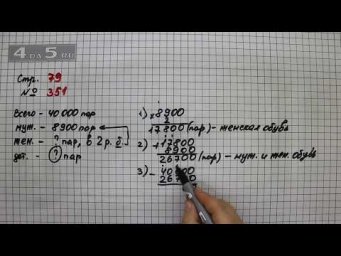 4DA5.RU
Стр. 79
№ 351
Всего - 40 000 пар
муж. - 8 900 пар
жен. - ? пар, в 2 р. б.
дет. - ? пар
1) × 8900
2
17800 (пар) - женская обувь
2) + 17800
8900
26700 (пар) - муж. и жен. обувь
3) - 40000